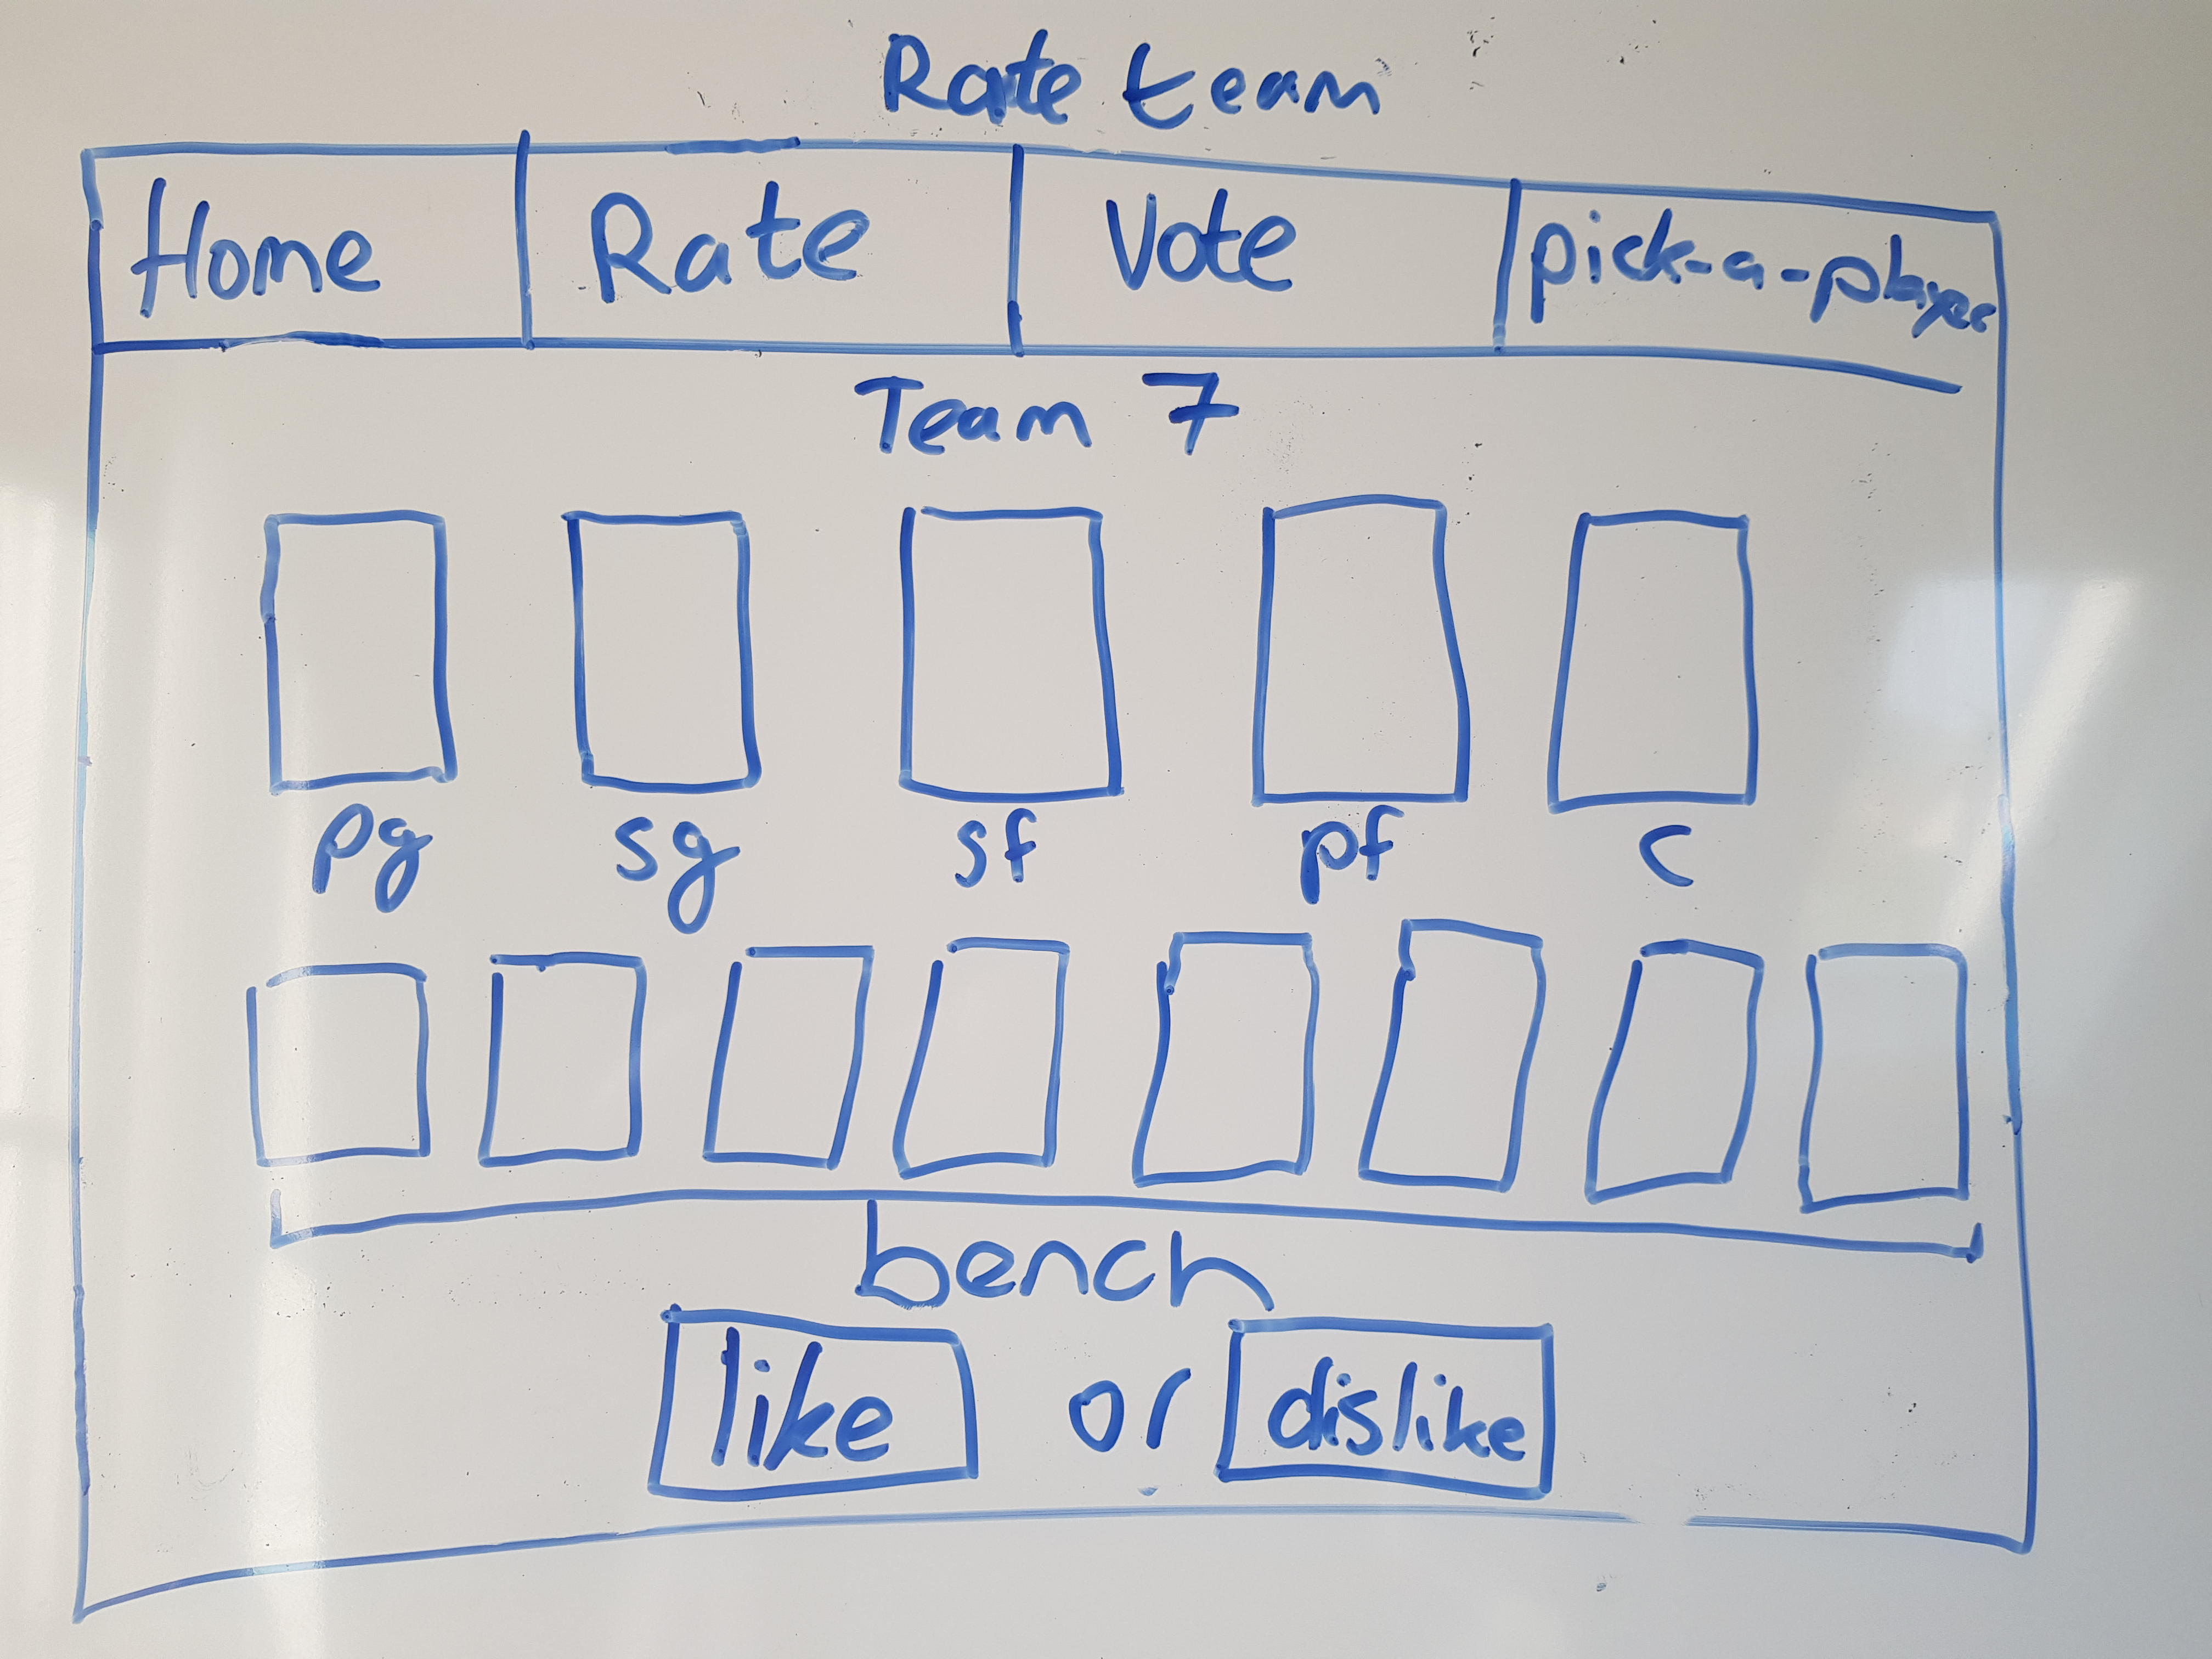 Rate team
Home Rate Vote pick-a-player
Team 7
pg sg sf pf c
bench
like or dislike